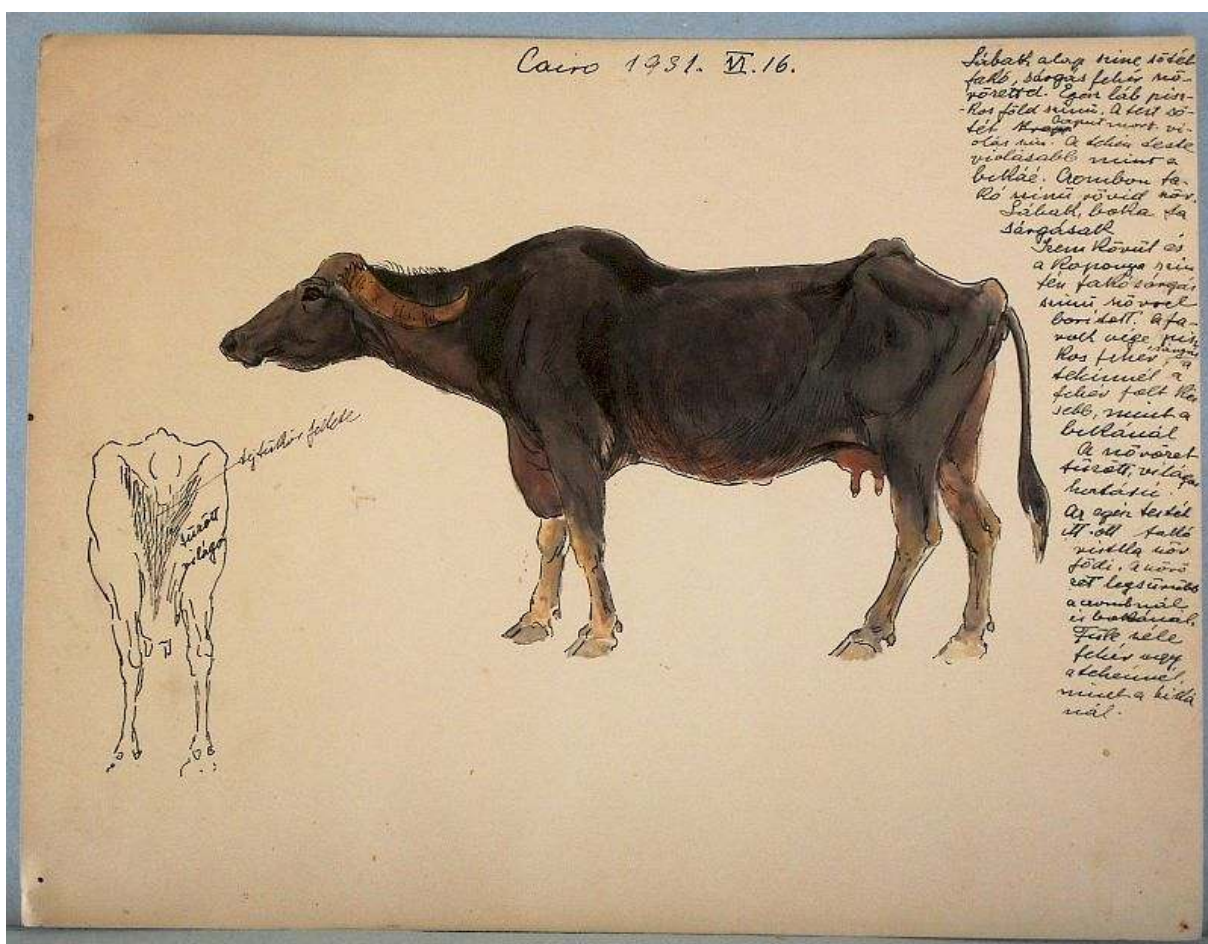 Cairo 1931. VI. 16.
Lábak alap szine sötét
fakó, sárgás fehér sző-
rözettel. Egész láb pisz-
kos föld szinü. A test sö-
tét caput mort. vi-
olás szin. A tehén teste
violásabb mint a
bikáé. Combon fa-
kó szinü rövid ször.
Lábak, boka
sárgásak
Szem körül és
a koponya szin
tén fakó sárgás
szinü szörrel
boritott. A fa-
rok vége pisz
kos fehér, sárgás a
tehénnél a
fehér folt ki
sebb, mint a
bikánál
A szőrözet
türött, világos
hatású.
Az egész testet
itt-ott
ször
födi. A szörö
zet legsürübb
a combnál
és bokánál.
Füle széle
fehér ugy
a tehénnél,
mint a biká
nál.
tejtükör felette
türött
világos